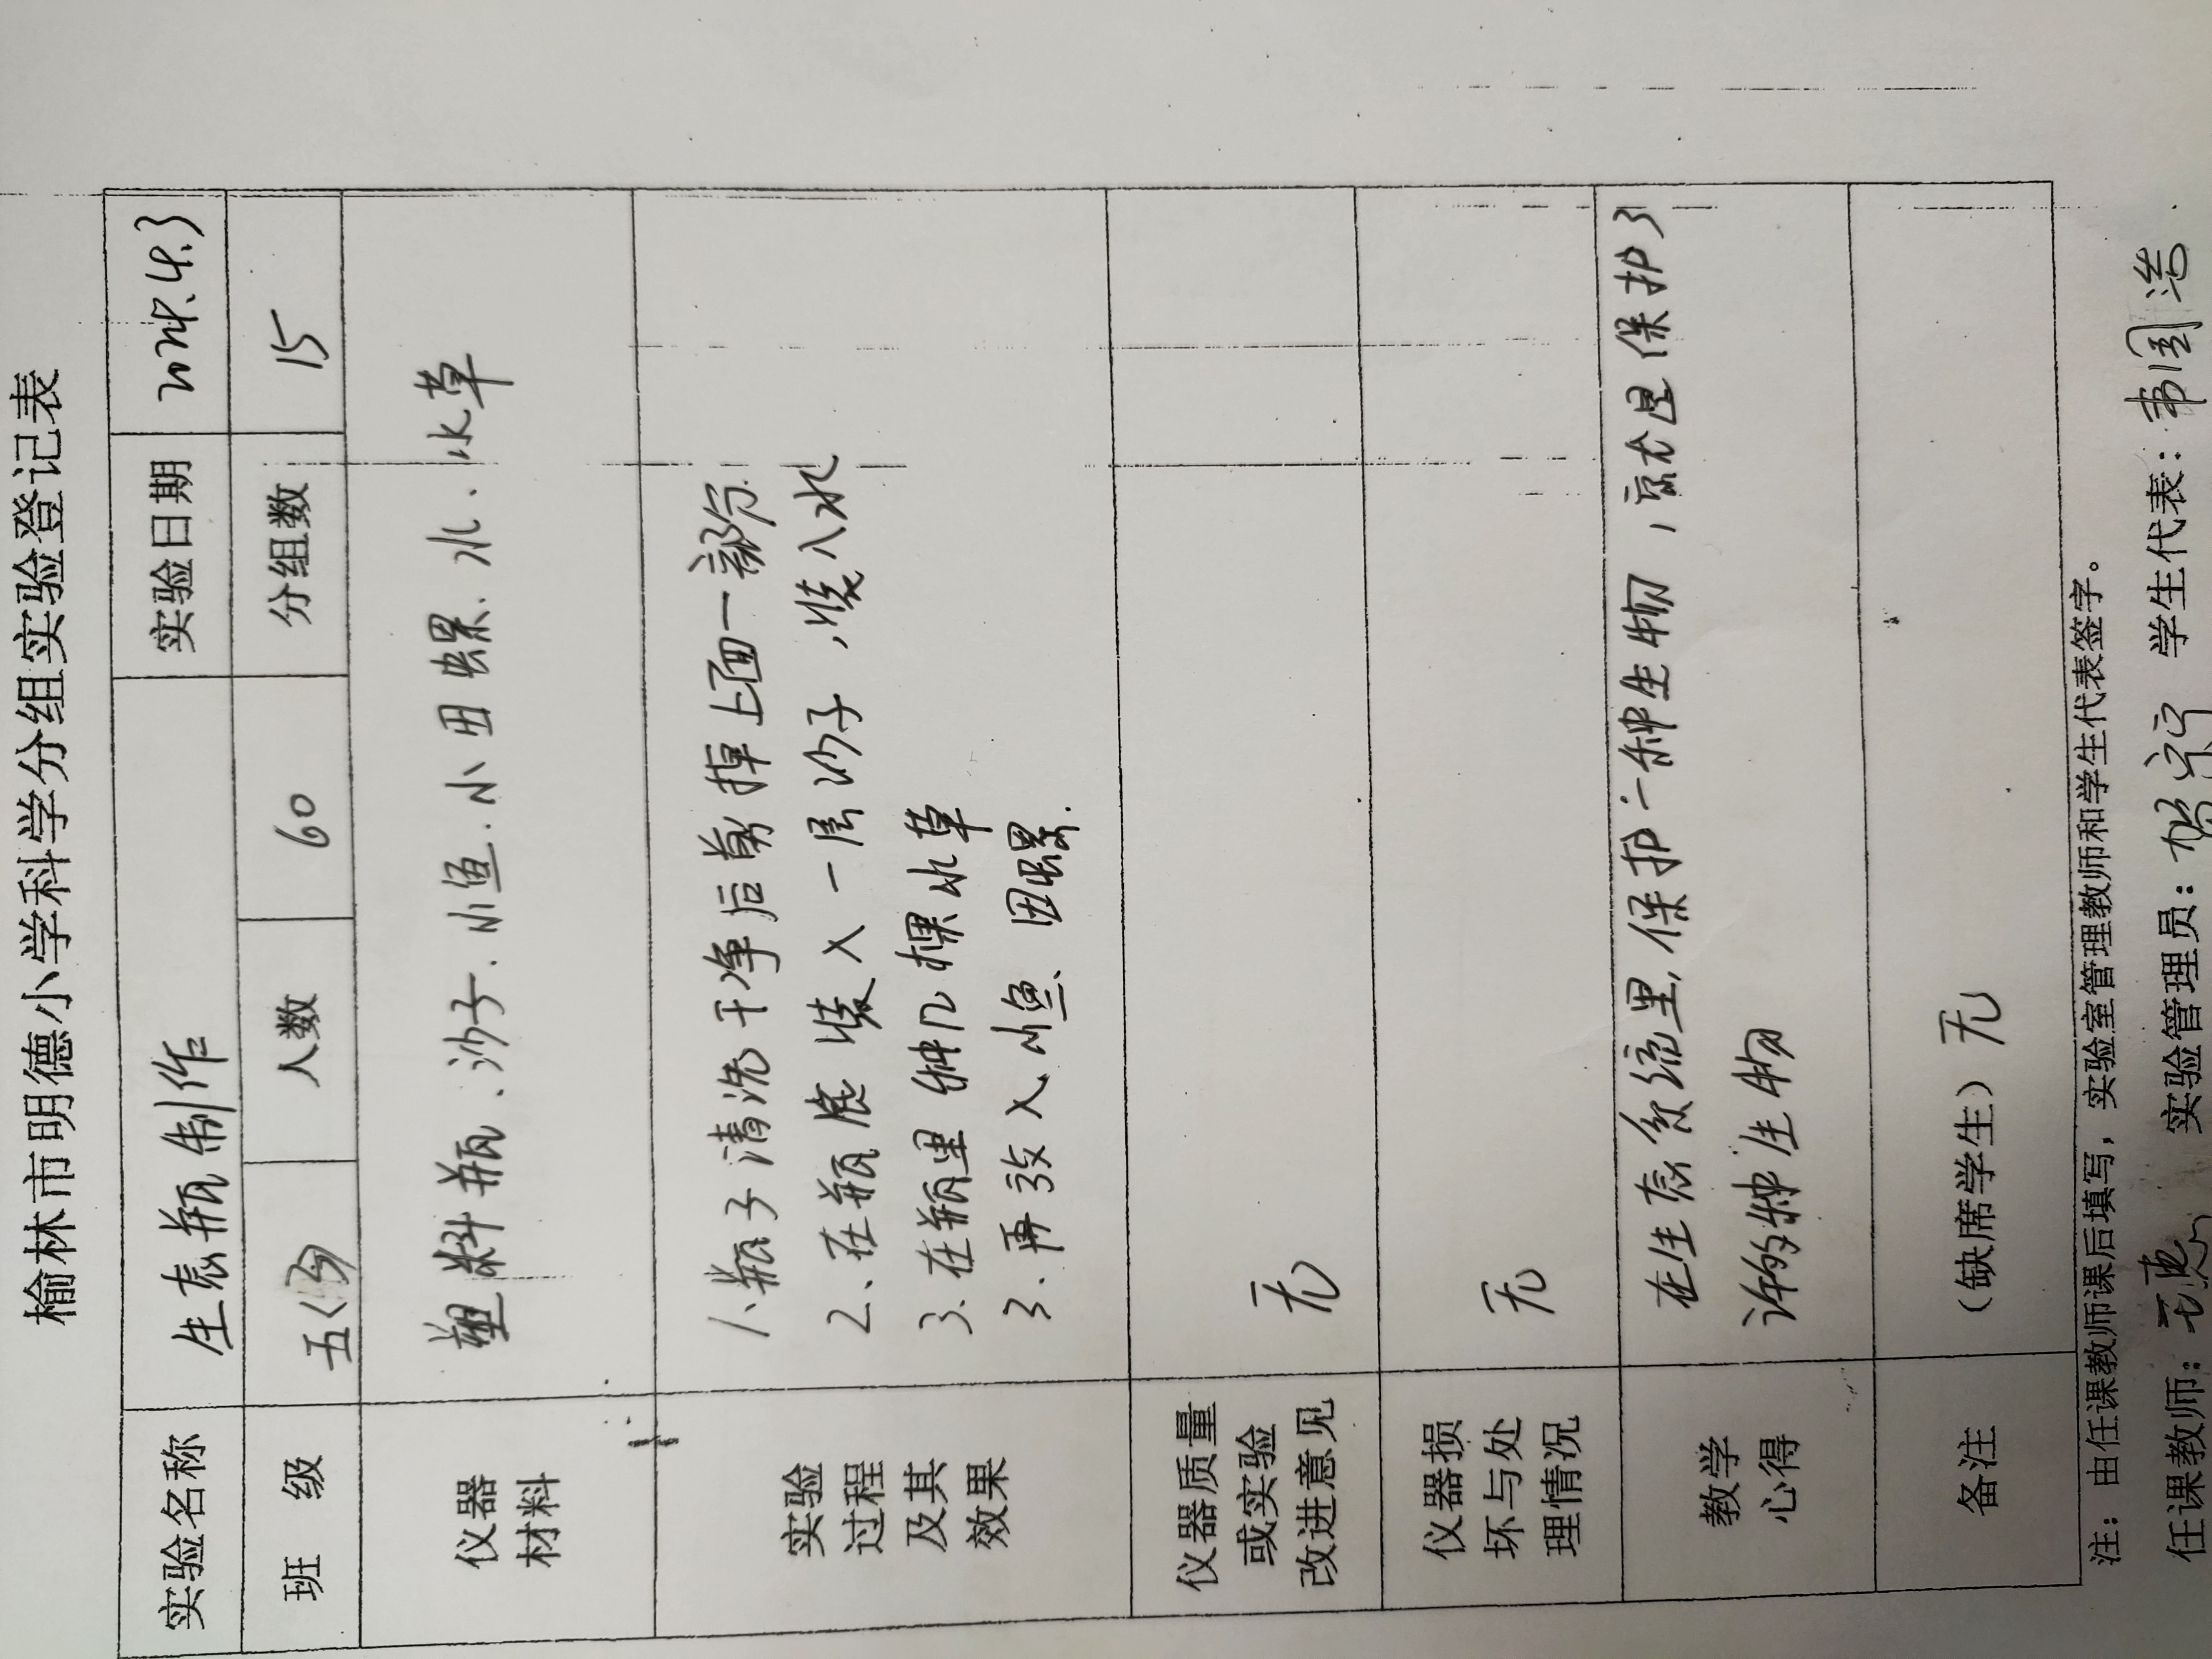 榆林市明德小学科学分组实验登记表
实验名称 生态瓶制作 实验日期 2024.4.3
班 级 五(3) 人数 60 分组数 15
仪器
材料
塑料瓶、沙子.小鱼.小田螺.水.水草
实验
过程
及其
效果
1.瓶子清洗干净后剪掉上面一部分.
2、在瓶底装入一层沙子,装入水
3.在瓶里种几棵水草
3.再放入小鱼、田螺.
仪器质量
或实验
改进意见
无
仪器损
坏与处
理情况
无
教学
心得
在生态系统里,保护一种生物,就是保护了
许多种生物
备注 (缺席学生) 无
注:由任课教师课后填写,实验室管理教师和学生代表签字。
任课教师: 实验管理员:贺宁 学生代表: